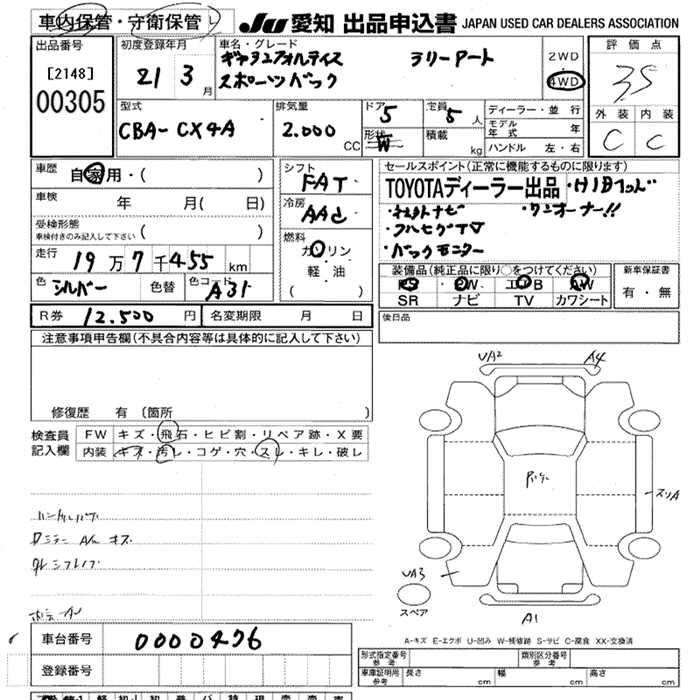 車内保管・守衛保管 JU 愛知 出品申込書 JAPAN USED CAR DEALERS ASSOCIATION
出品番号 初度登録年月 車名・グレード 評価点
[2148] 21 3 月 ギャランフォルティス ラリーアート 2WD 3.5
00305 スポーツバック 4WD
型式 排気量 ドア 定員 ディーラー・並行 外装 内装
CBA-CX4A 2.000 CC 5 5 人 モデル年式 年 C C
形状 W 積載 kg ハンドル 左・右
車歴 自家用・( ) シフト FAT セールスポイント(正常に機能するものに限ります)
車検 年 月( 日) 冷房 AAC TOYOTAディーラー出品 ・HIDヘッド
受検形態 ・ナビ ・ワンオーナー!!
車検付きのみ記入して下さい ( ) 燃料 ・フルセグTV
走行 19万7千455 km ガソリン ・バックモニター
軽・油 装備品(純正品に限り○をつけてください) 新車保証書
色 シルバー 色替 色コード A31 ( ) PS PW エアB AW 有・無
SR ナビ TV カワシート
R券 12.500 円 名変期限 月 日 後日品
注意事項申告欄(不具合内容等は具体的に記入して下さい)
修復歴 有(箇所 )
検査員 FW キズ・飛石・ヒビ割・リペア跡・X要
記入欄 内装 キズ・汚レ・コゲ・穴・スレ・キレ・破レ
UA2 A4
スリA
UA3
スペア A1
A-キズ E-エクボ U-凹み W-補修跡 S-サビ C-腐食 XX-交換済
車台番号 0000476 形式指定番号 参考 類別区分番号 参考
登録番号 車庫証明用 参考 長さ cm 幅 cm 高さ cm